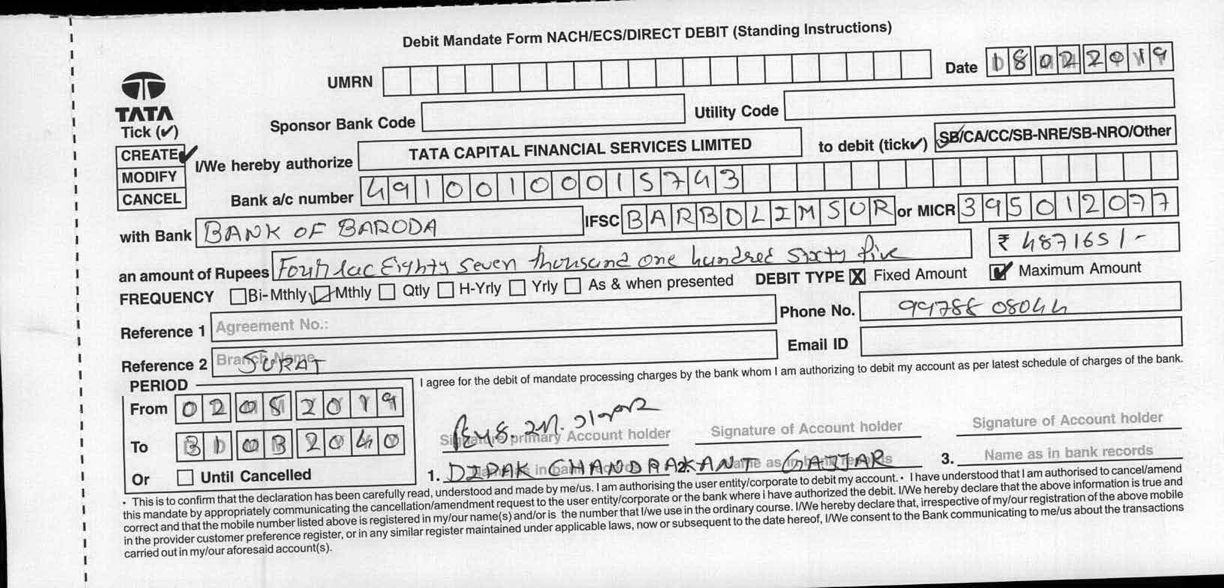 Debit Mandate Form NACH/ECS/DIRECT DEBIT (Standing Instructions)
UMRN Date 18022019
TATA
Sponsor Bank Code Utility Code
Tick (✓)
CREATE ✓ I/We hereby authorize TATA CAPITAL FINANCIAL SERVICES LIMITED to debit (tick✓) SB/CA/CC/SB-NRE/SB-NRO/Other
MODIFY
CANCEL Bank a/c number 49100100015743
with Bank BANK OF BARODA IFSC BARB0LIMSUR or MICR 395012077
an amount of Rupees Four lac Eighty seven thousand one hundred sixty five ₹ 487165/-
FREQUENCY Bi-Mthly Mthly Qtly H-Yrly Yrly As & when presented DEBIT TYPE X Fixed Amount ✓ Maximum Amount
Reference 1 Agreement No.: Phone No. 99788 08044
Reference 2 Branch Name SURAT Email ID
PERIOD I agree for the debit of mandate processing charges by the bank whom I am authorizing to debit my account as per latest schedule of charges of the bank.
From
To
Signature primary Account holder Signature of Account holder Signature of Account holder
Or Until Cancelled 1. DIPAK CHANDRAKANT GAJJAR 3. Name as in bank records
• This is to confirm that the declaration has been carefully read, understood and made by me/us. I am authorising the user entity/corporate to debit my account. • I have understood that I am authorised to cancel/amend
this mandate by appropriately communicating the cancellation/amendment request to the user entity/corporate or the bank where i have authorized the debit. I/We hereby declare that the above information is true and
correct and that the mobile number listed above is registered in my/our name(s) and/or is the number that I/we use in the ordinary course. I/We hereby declare that, irrespective of my/our registration of the above mobile
in the provider customer preference register, or in any similar register maintained under applicable laws, now or subsequent to the date hereof, I/We consent to the Bank communicating to me/us about the transactions
carried out in my/our aforesaid account(s).